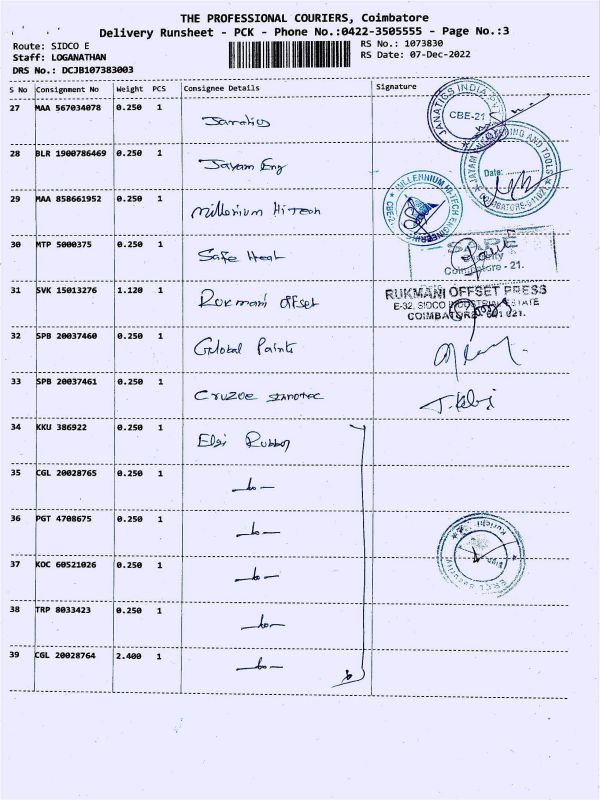 THE PROFESSIONAL COURIERS, Coimbatore
Delivery Runsheet - PCK - Phone No.:0422-3505555 - Page No.:3
Route: SIDCO E
RS No.: 1073830
Staff: LOGANATHAN
RS Date: 07-Dec-2022
DRS No.: DCJB107383003
S No Consignment No Weight PCS Consignee Details Signature
27 MAA 567034078 0.250 1 Janatics
JANATICS INDIA
CBE-21
28 BLR 1900786469 0.250 1 Jayam Eng
AND TOOLS
Date:
COIMBATORE-
29 MAA 858661952 0.250 1 Millenium Hitech
MILLENNIUM HI-TECH ENGINEERING
30 MTP 5000375 0.250 1 Safe Heat
SAFE
Coimbatore - 21.
31 SVK 15013276 1.120 1 Rukmani offset
RUKMANI OFFSET PRESS
E-32, SIDCO INDUSTRIAL ESTATE
COIMBATORE - 641 021.
32 SPB 20037460 0.250 1 Global Paints
33 SPB 20037461 0.250 1 Cruzoe
34 KKU 386922 0.250 1 Elgi Rubber
35 CGL 20028765 0.250 1
36 PGT 4708675 0.250 1
Kurichi
37 KOC 60521026 0.250 1
38 TRP 8033423 0.250 1
39 CGL 20028764 2.400 1